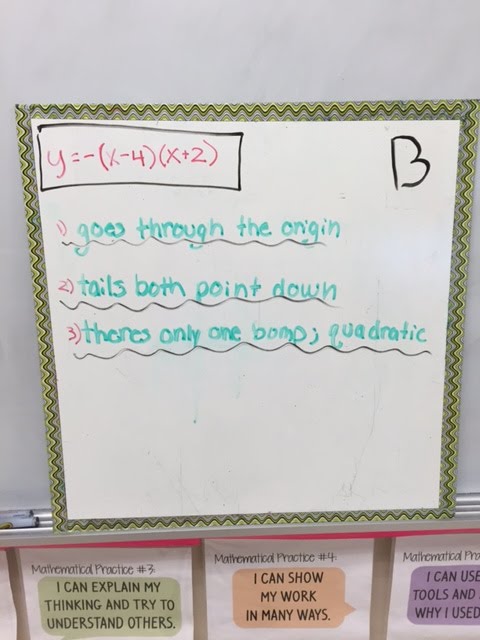 y=-(x-4)(x+2)
B
1) goes through the origin
2) tails both point down
3) theres only one bomp; quadratic
Mathematical Practice #3:
I CAN EXPLAIN MY
THINKING AND TRY TO
UNDERSTAND OTHERS.
Mathematical Practice #4:
I CAN SHOW
MY WORK
IN MANY WAYS.
Mathematical
I CAN USE
TOOLS AND
WHY I USED